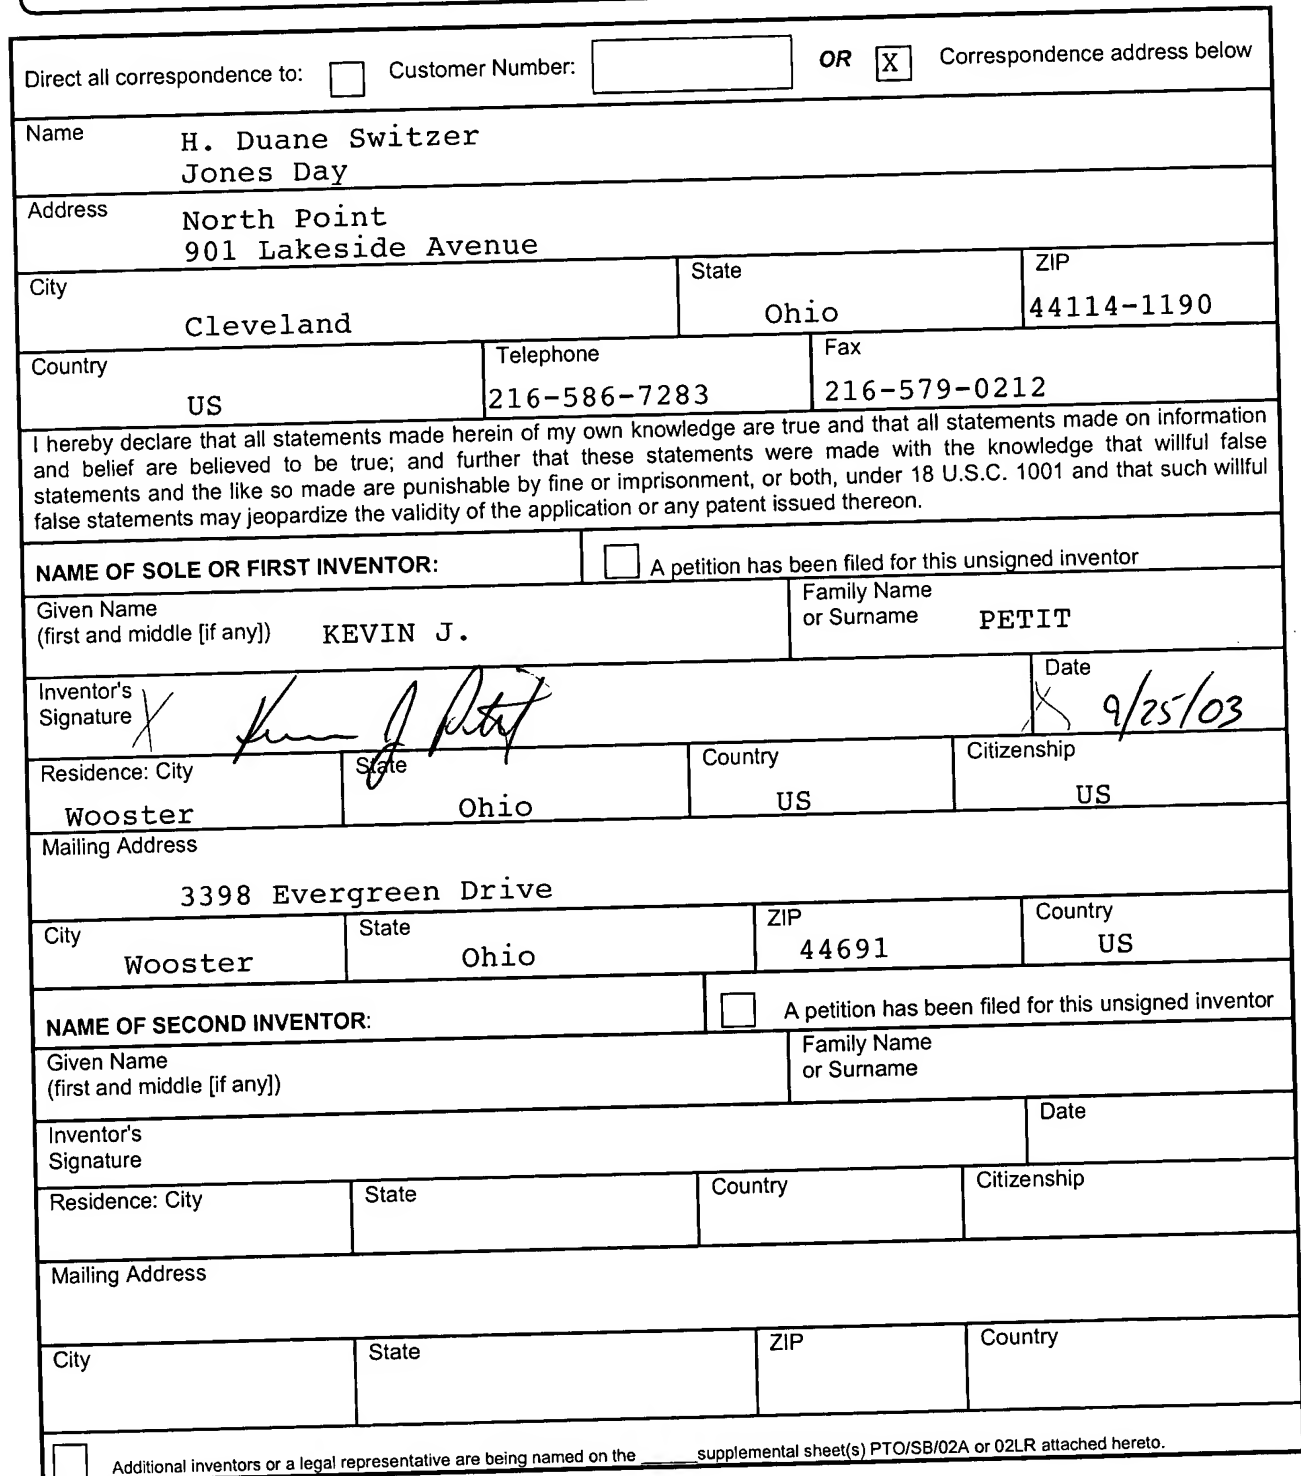 Direct all correspondence to: Customer Number: OR X Correspondence address below
Name
H. Duane Switzer
Jones Day
Address
North Point
901 Lakeside Avenue
City State ZIP
Cleveland Ohio 44114-1190
Country Telephone Fax
US 216-586-7283 216-579-0212
I hereby declare that all statements made herein of my own knowledge are true and that all statements made on information
and belief are believed to be true; and further that these statements were made with the knowledge that willful false
statements and the like so made are punishable by fine or imprisonment, or both, under 18 U.S.C. 1001 and that such willful
false statements may jeopardize the validity of the application or any patent issued thereon.
NAME OF SOLE OR FIRST INVENTOR: A petition has been filed for this unsigned inventor
Given Name Family Name
(first and middle [if any]) KEVIN J. or Surname PETIT
Inventor's Date
Signature X Kevin J Petit X 9/25/03
Residence: City State Country Citizenship
Wooster Ohio US US
Mailing Address
3398 Evergreen Drive
City State ZIP Country
Wooster Ohio 44691 US
NAME OF SECOND INVENTOR: A petition has been filed for this unsigned inventor
Given Name Family Name
(first and middle [if any]) or Surname
Inventor's Date
Signature
Residence: City State Country Citizenship
Mailing Address
City State ZIP Country
Additional inventors or a legal representative are being named on the ______supplemental sheet(s) PTO/SB/02A or 02LR attached hereto.